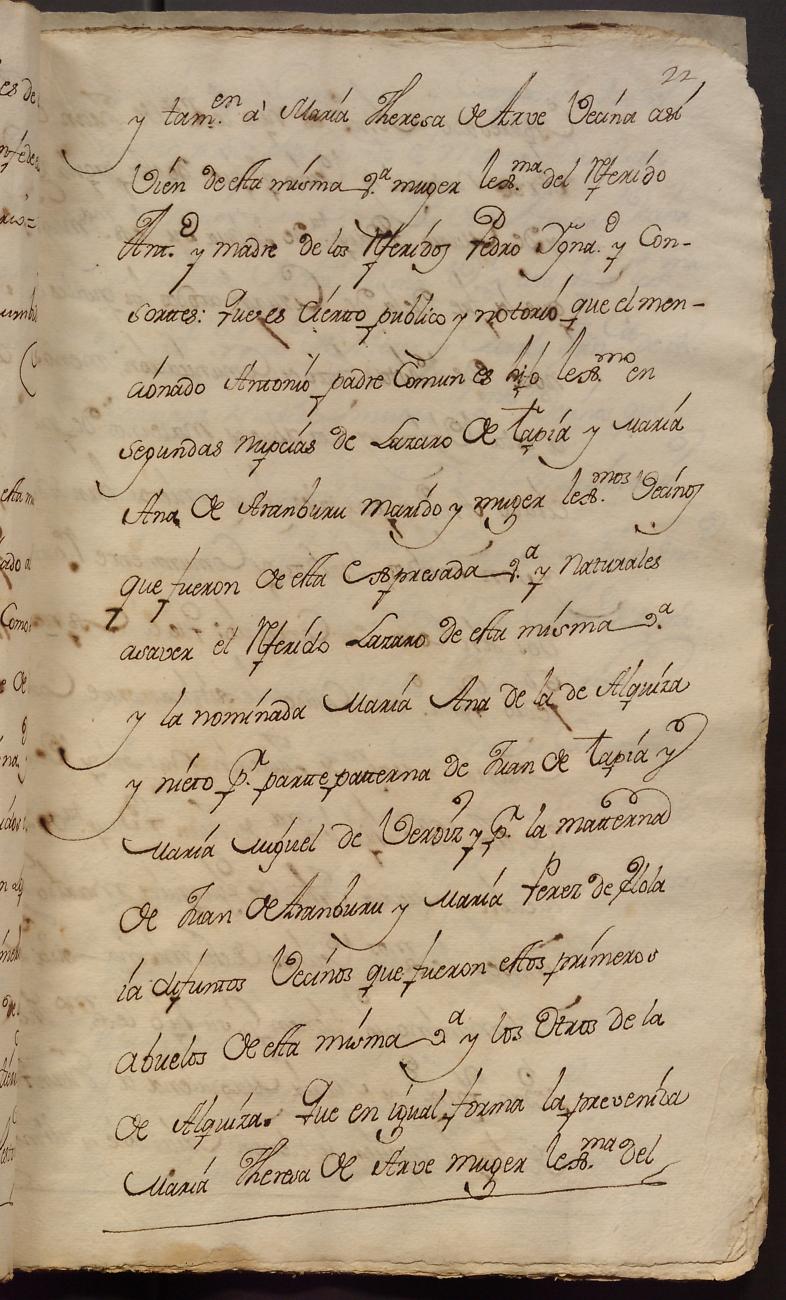 22
y tam.en â María Theresa de Arve Vecina asi
vien de esta misma v.a muger lex.ma del Rferido
Ant.o y madre de los Rferidos Pedro Ygna.o y Con-
sorttes: Que es Ciertto publico y nottorio que el men-
cionado Anttonio padre Comun es hijo lex.mo en
segundas nupcias de Lazaro de tapia y María
Ana de Aranburu marido y muger lex.mos Vecinos
que fueron de esta expresada v.a y Natturales
asaver el Rferido Lazaro de esta misma v.a
y la nominada María Ana de la de Alquiza
y nietto p.r partte patterna de Juan de tapia y
María Miguel de Verdiz y p.r la matterna
de Juan de Aranburu y María Perez de
ia difuntos Vecinos que fueron estos primeros
abuelos de esta misma v.a y los Otros de la
de Alquiza. Que en igual forma la prevenida
María Theresa de Arve muger lex.ma del